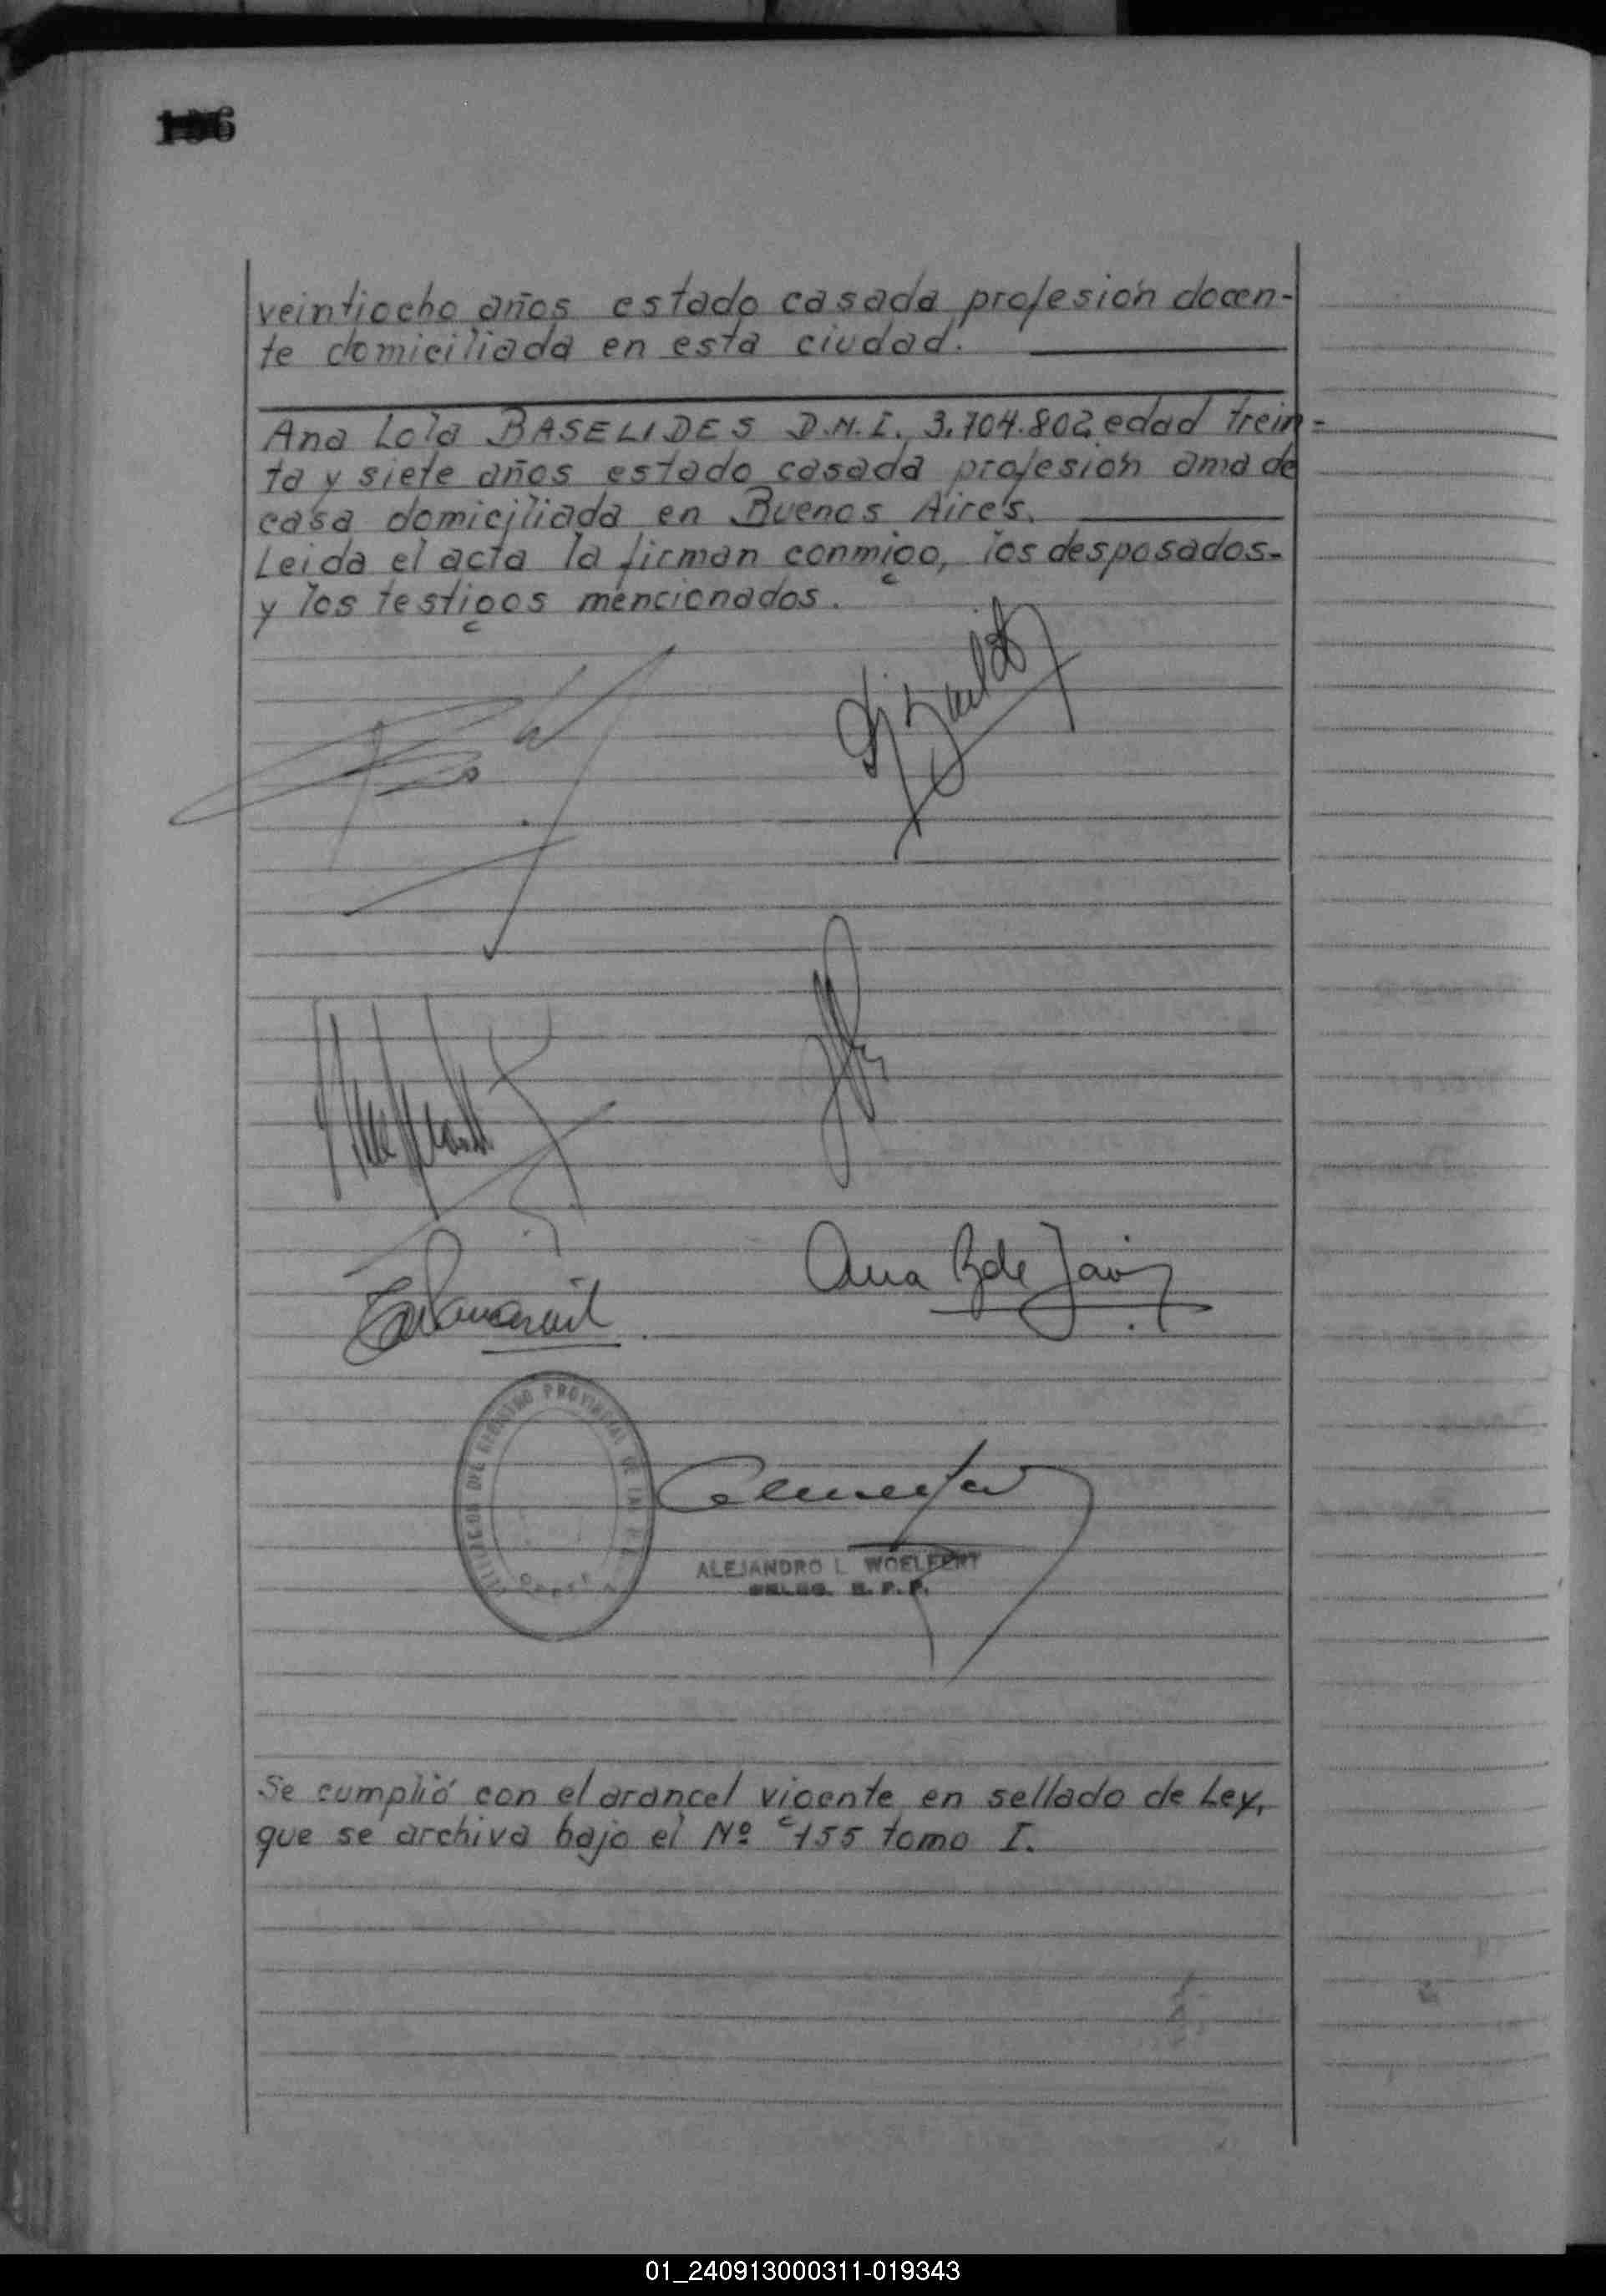 veintiocho años estado casada profesión docen-
te domiciliada en esta ciudad.
Ana Lola BASELIDES D.N.I. 3.704.802 edad trein=
ta y siete años estado casada profesión ama de
casa domiciliada en Buenos Aires.
Leida el acta la firman conmigo, los desposados-
y los testigos mencionados.
Ana B de
REGISTRO PROVINCIAL DE LAS
ALEJANDRO L. WOELFERT
DELEG. R. P. P.
Se cumplió con el arancel vigente en sellado de Ley,
que se archiva bajo el Nº 155 tomo I.
01_240913000311-019343